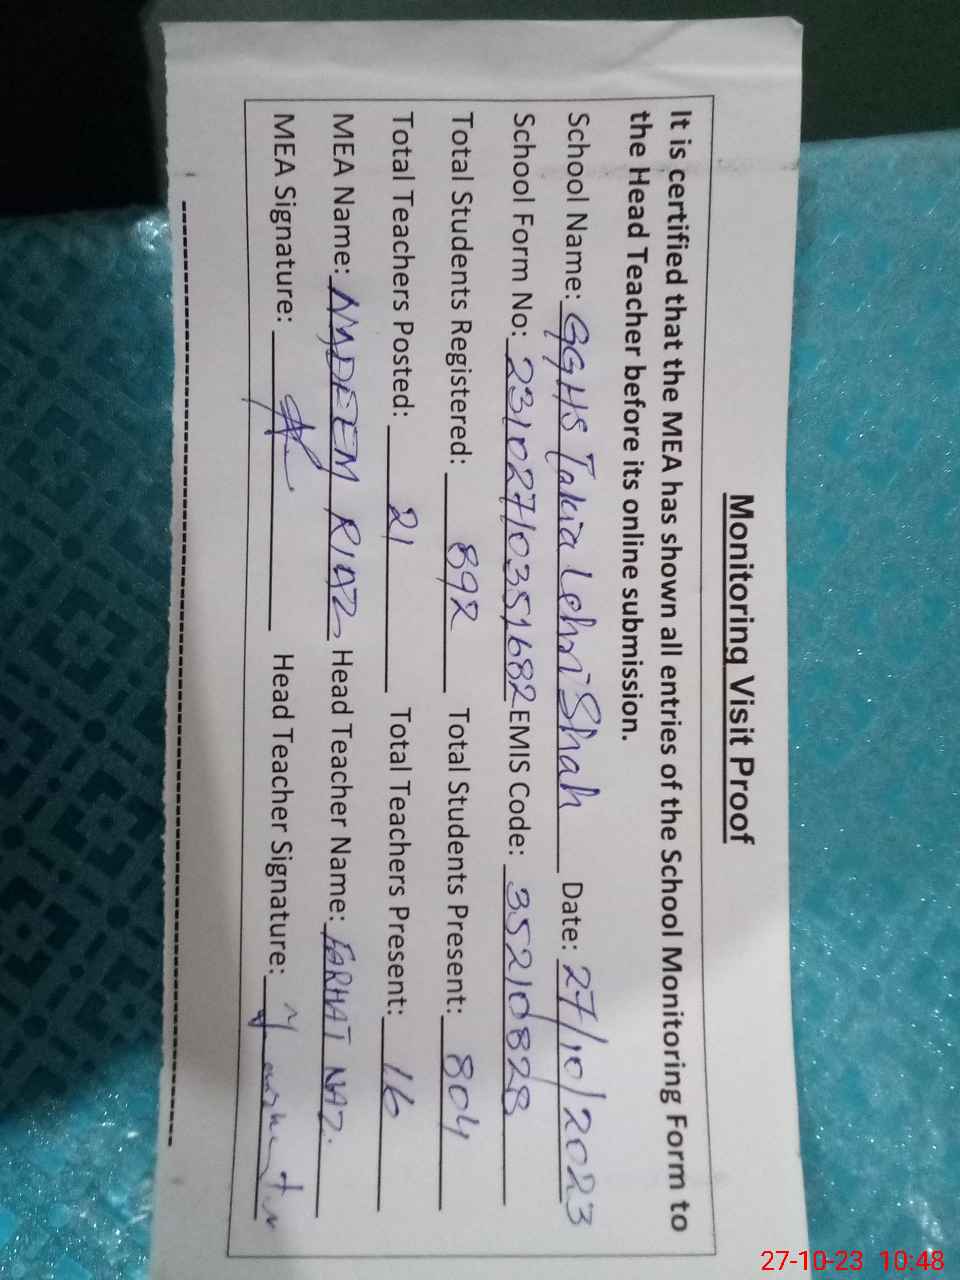 Monitoring Visit Proof
It is certified that the MEA has shown all entries of the School Monitoring Form to
the Head Teacher before its online submission.
School Name: GGHS Takia Lehri Shah Date: 27/10/2023
School Form No: 23102710351682 EMIS Code: 35210828
Total Students Registered: 892 Total Students Present: 804
Total Teachers Posted: 21 Total Teachers Present: 16
MEA Name: NADEEM RIAZ Head Teacher Name: FARHAT NAZ.
MEA Signature: Head Teacher Signature:
27-10-23 10:48